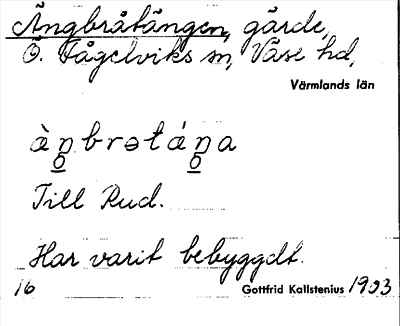 Ängbråtängen, gärde,
Ö. Fågelviks sn, Väse hd,
Värmlands län
Till Rud.
Har varit bebyggdt.
16 Gottfrid Kallstenius 1903